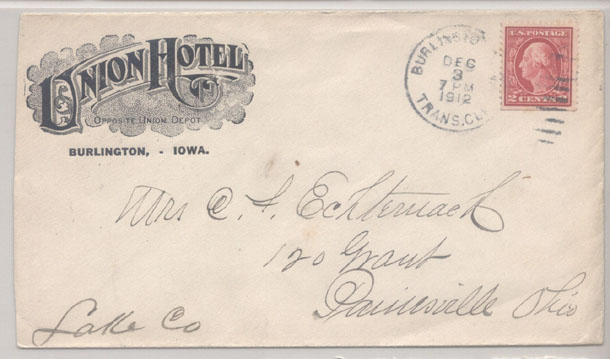 UNION HOTEL
OPPOSITE UNION DEPOT
BURLINGTON, - IOWA.
BURLINGTO
DEC
3
7 PM
1912
TRANS.CL
U.S. POSTAGE
2 CENTS 2
Mrs C. F. Echternach
120 Grant
Painesville Ohio
Lake Co